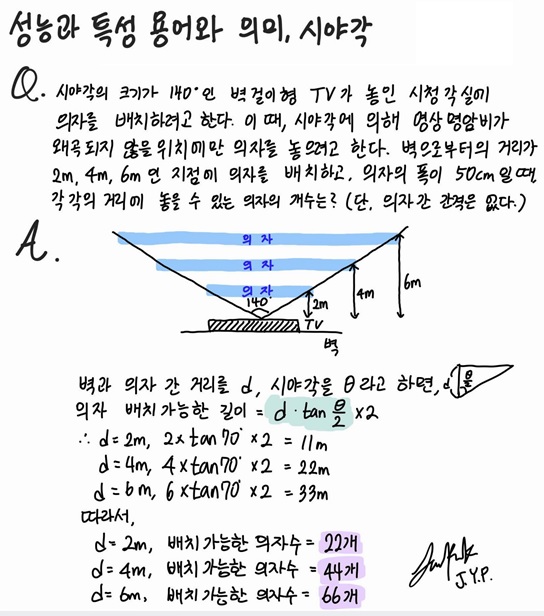 성능과 특성 용어와 의미, 시야각
Q. 시야각의 크기가 140°인 벽걸이형 TV가 놓인 시청각실에
의자를 배치하려고 한다. 이 때, 시야각에 의해 영상명암비가
왜곡되지 않을 위치에만 의자를 놓으려고 한다. 벽으로부터의 거리가
2m, 4m, 6m 인 지점에 의자를 배치하고, 의자의 폭이 50cm일 때
각각의 거리에 놓을 수 있는 의자의 개수는? (단, 의자간 간격은 없다.)
A.
의자
의자
의자
140°
2m
4m
6m
TV
벽
벽과 의자 간 거리를 d, 시야각을 θ라고 하면,
d
θ/2
의자 배치가능한 길이 = d · tan θ/2 × 2
∴ d = 2m, 2 × tan70° × 2 = 11m
d = 4m, 4 × tan70° × 2 = 22m
d = 6m, 6 × tan70° × 2 = 33m
따라서,
d = 2m, 배치가능한 의자수 = 22개
d = 4m, 배치가능한 의자수 = 44개
d = 6m, 배치가능한 의자수 = 66개
J.Y.P.